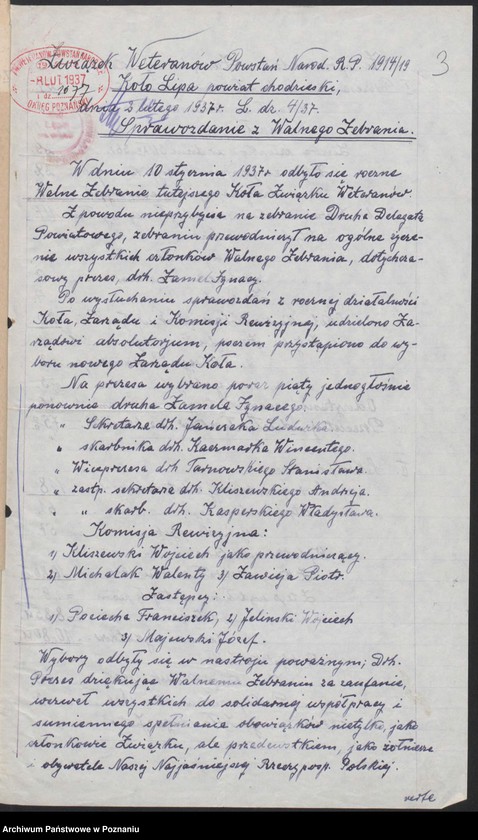 Związek Weteranów Powstań Narod. R.P. 1914/19
3
Koło Lipa powiat chodzieski,
dnia 3 lutego 1937r. L. dz. 4/37.
Sprawozdanie z Walnego Zebrania.
-8 LUT 1937
OKRĘG POZNAŃ
W dniu 10 stycznia 1937r odbyło się roczne
Walne Zebranie tutejszego Koła Związku Weteranów.
Z powodu nieprzybycia na zebranie Druha Delegata
Powiatowego, zebraniu przewodniczył na ogólne życze-
nie wszystkich członków Walnego Zebrania, dotychcza-
sowy prezes, drh. Zamel Ignacy.
Po wysłuchaniu sprawozdań z rocznej działalności
Koła, Zarządu i Komisji Rewizyjnej, udzielono Za-
rządowi absolutorjum, poczem przystąpiono do wy-
boru nowego Zarządu Koła.
Na prezesa wybrano poraz piąty jednogłośnie
ponownie druha Zamela Ignacego.
" Sekretarza drh. Janiszaka Ludwika
" skarbnika drh. Kaczmarka Wincentego.
" Wiceprezesa drh Tarnowskiego Stanisława.
" zastp. sekretarza drh. Kliszewskiego Andrzeja.
" " skarb. drh. Kasperskiego Władysława.
Komisja Rewizyjna:
1) Kliszewski Wojciech jako przewodniczący.
2) Michalak Walenty 3) Zawieja Piotr.
Zastępcy:
1) Pociecha Franciszek, 2) Jeliński Wojciech
3) Majewski Józef.
Wybory odbyły się w nastroju poważnym; Drh.
Prezes dziękując Walnemu Zebraniu za zaufanie,
wezwał wszystkich do solidarnej współpracy i
sumiennego spełniania obowiązków nietylko, jako
członkowie Związku, ale przedewstkiem, jako żołnierze
i obywatele Naszej Najjaśniejszej Rzeczyposp. Polskiej.
verte
Archiwum Państwowe w Poznaniu